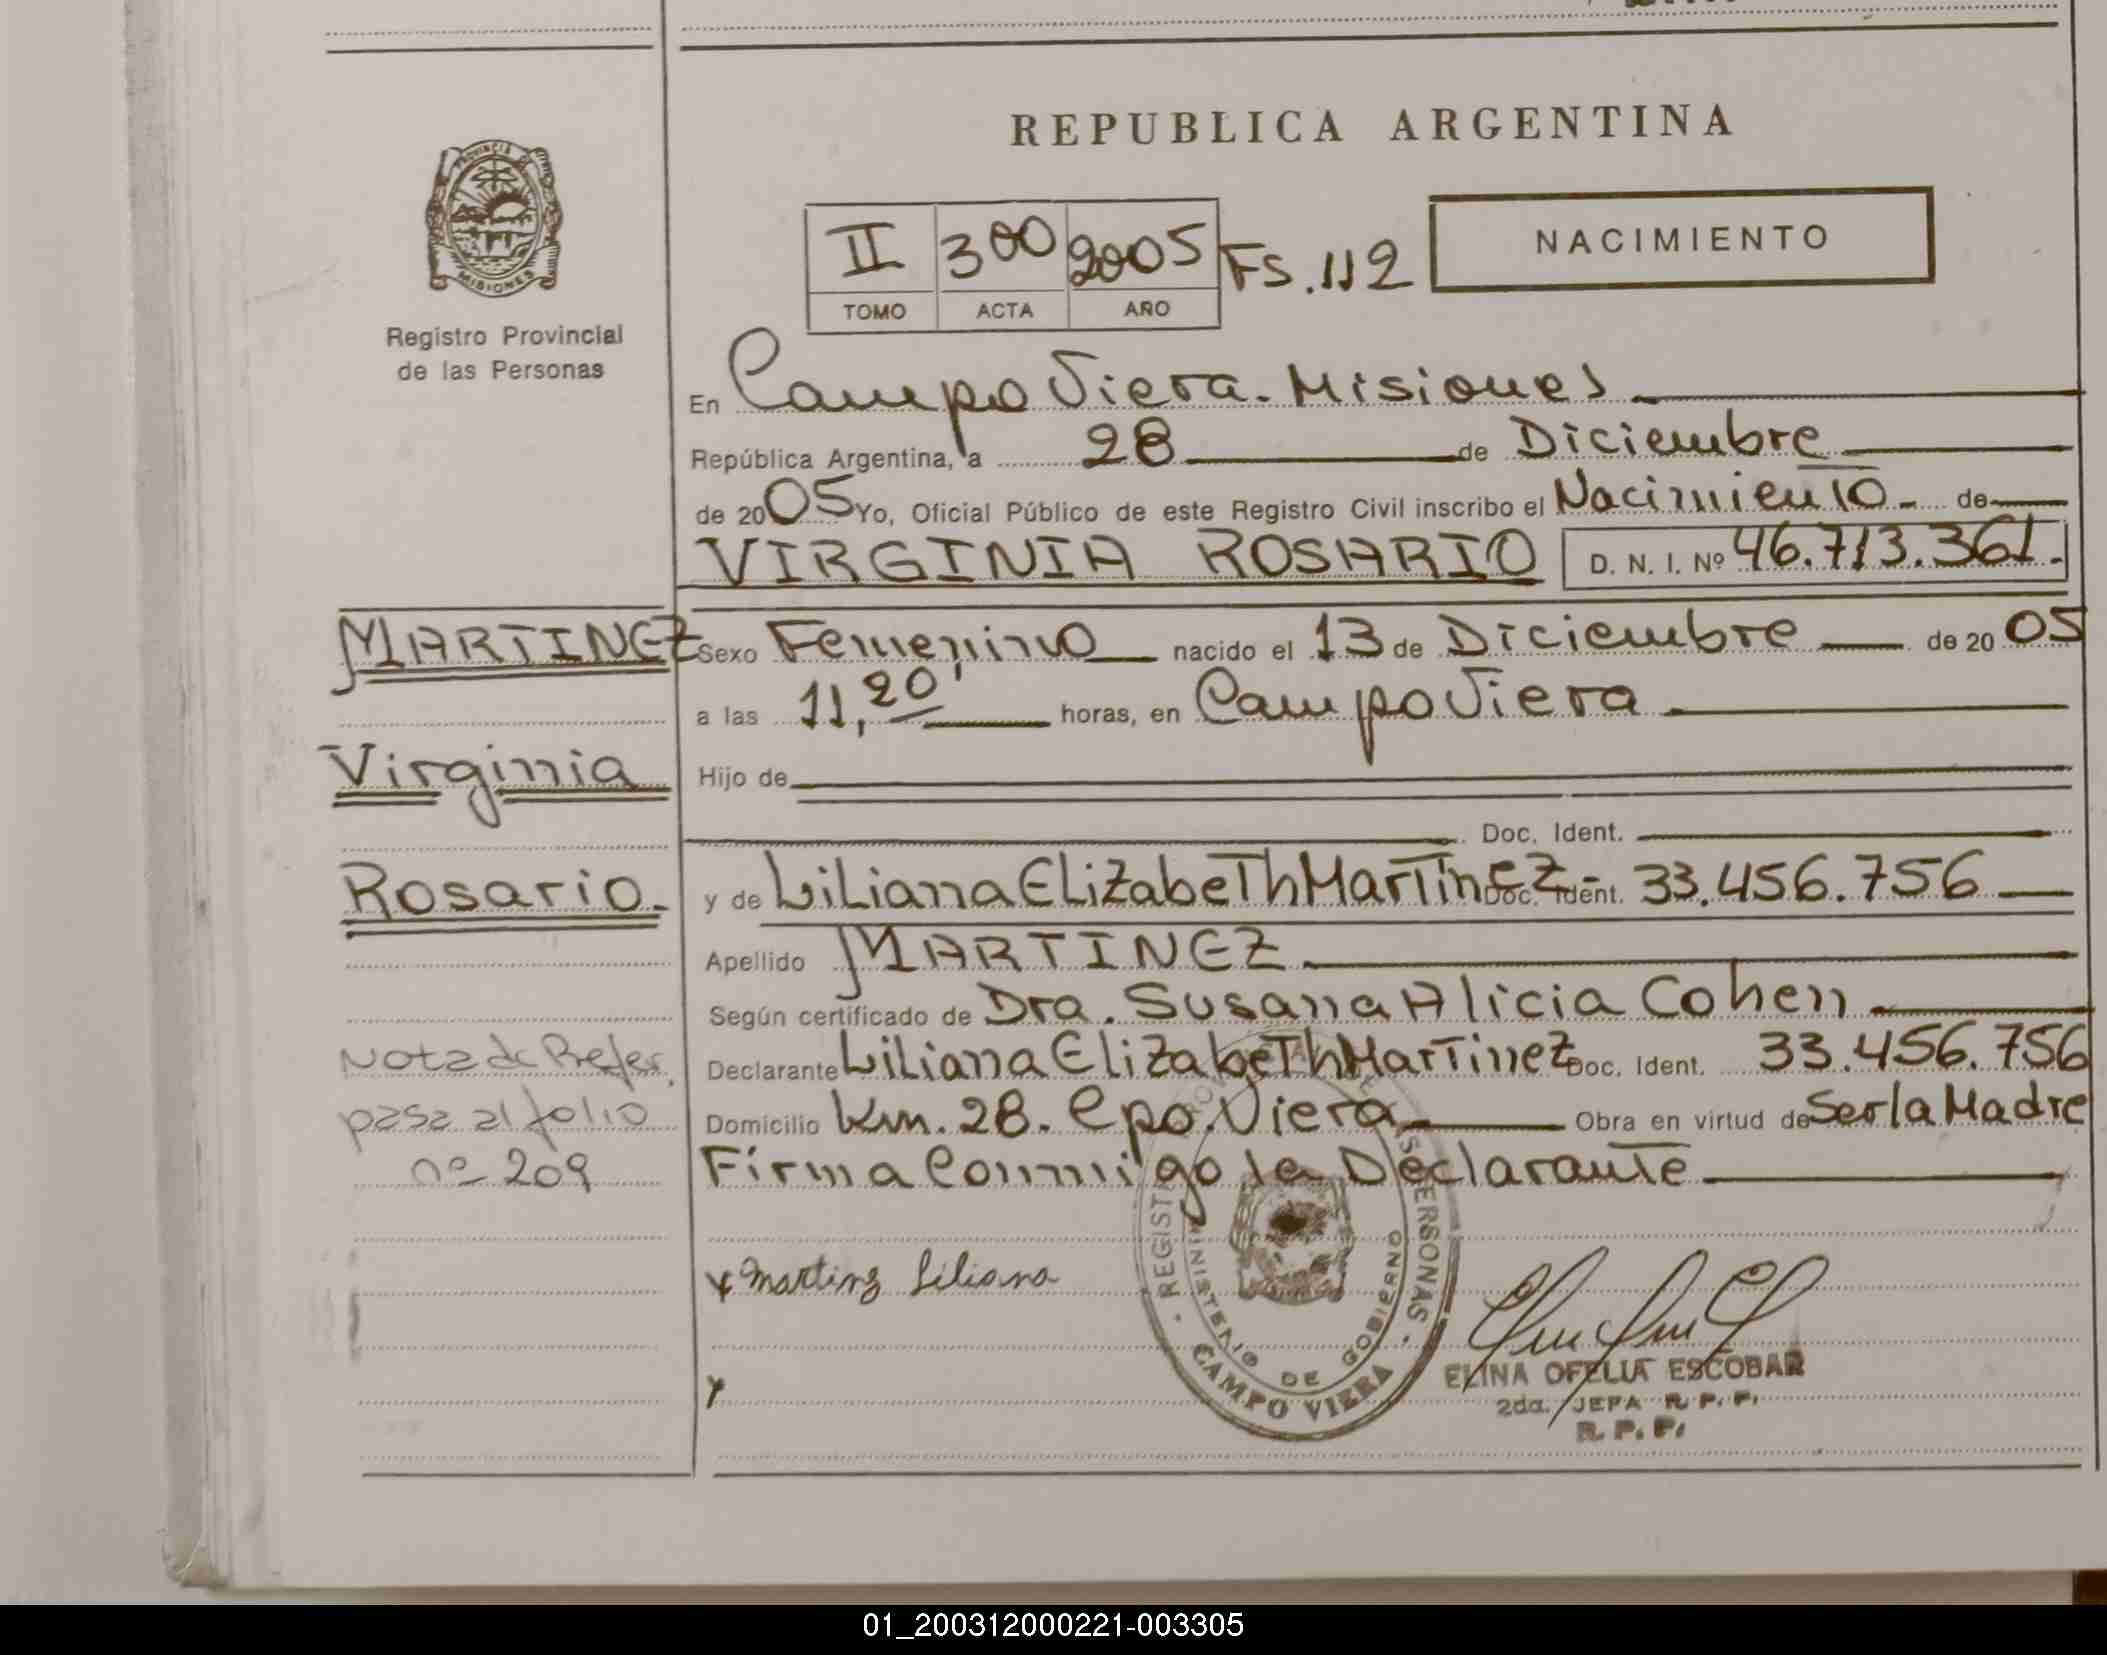 REPUBLICA ARGENTINA
PROVINCIA DE
MISIONES
Registro Provincial
de las Personas
II 300 2005 FS.112
TOMO ACTA AÑO
NACIMIENTO
En Campo Viera. Misiones
República Argentina, a 28 de Diciembre
de 2005 Yo, Oficial Público de este Registro Civil inscribo el Nacimiento de
VIRGINIA ROSARIO D. N. I. Nº 46.713.361.
MARTINEZ
Virginia
Rosario
Sexo Femenino nacido el 13 de Diciembre de 2005
a las 11,20' horas, en Campo Viera
Hijo de
Doc. Ident.
y de Liliana Elizabeth Martinez Doc. Ident. 33.456.756
Apellido MARTINEZ
Según certificado de Dra. Susana Alicia Cohen
Declarante Liliana Elizabeth Martinez Doc. Ident. 33.456.756
Domicilio Km. 28. Cpo. Viera Obra en virtud de Ser la Madre
Firma Conmigo la Declarante
Nota de Refer.
pasa al folio
nº 209
Martinz Liliana
MINISTERIO DE GOBIERNO
CAMPO VIERA
ELINA OFELIA ESCOBAR
2da. JEFA R. P. P.
R. P. P.
01_200312000221-003305